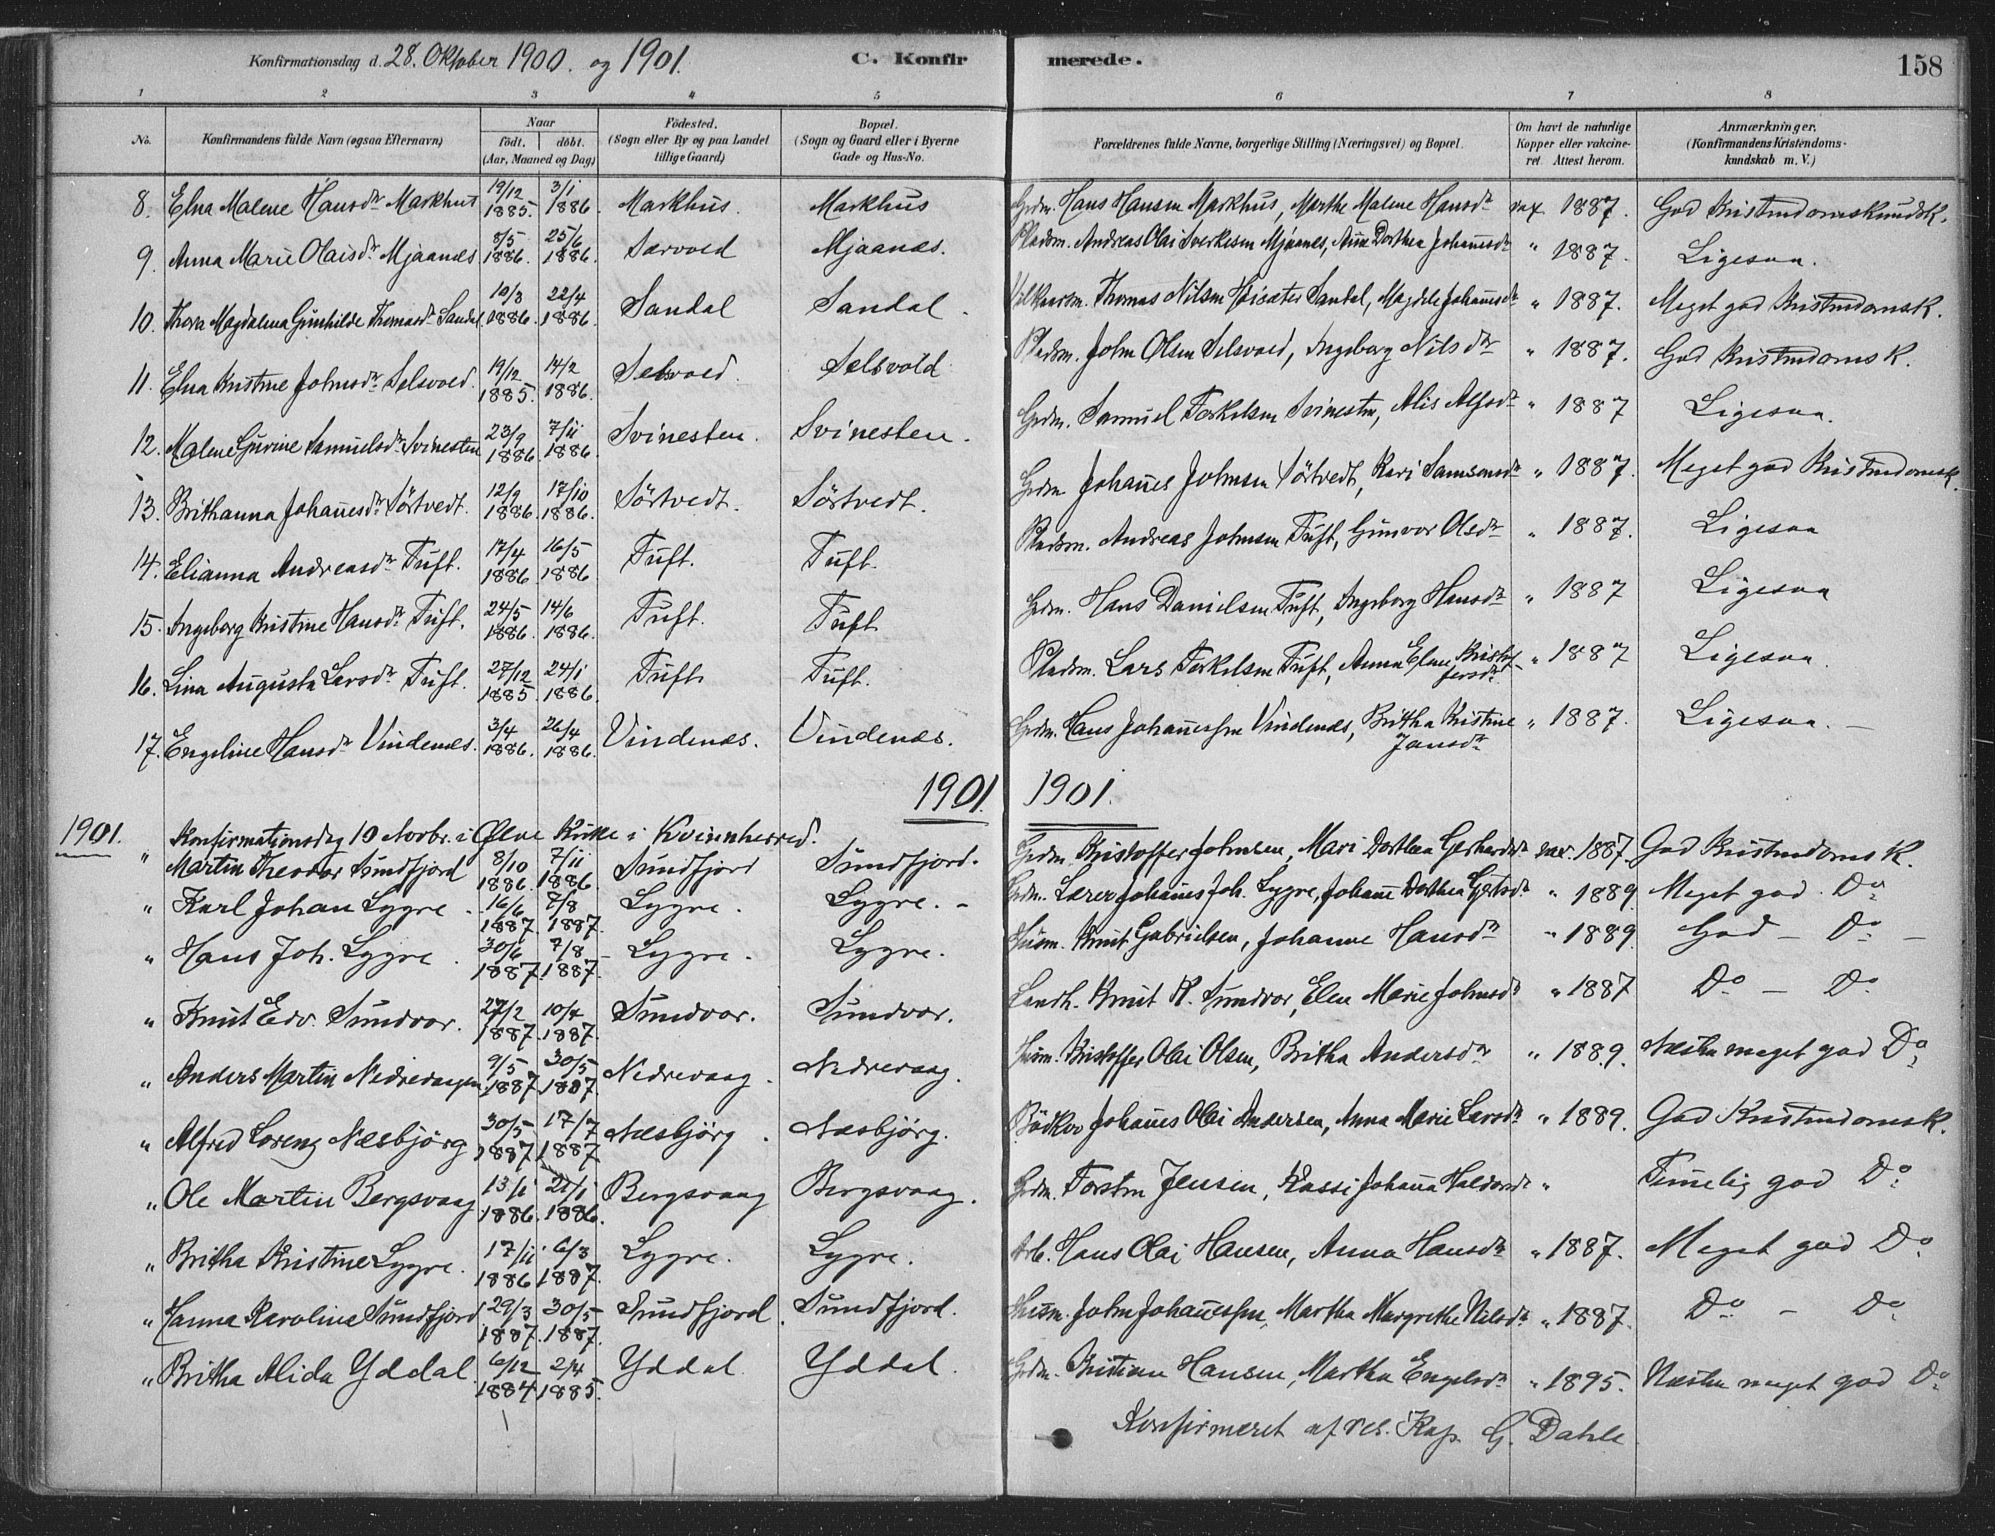 Konfirmationsdag d. 28. Oktober 1900. og 1901. C. Konfirmerede. 158
1 2 3 4 5 6 7 8
No. Konfirmandens fulde Navn (ogsaa Efternavn) Naar födt. döbt. (Aar, Maaned og Dag) Födested. (Sogn eller By og paa Landet tillige Gaard) Bopæl. (Sogn og Gaard eller i Byerne Gade og Hus-No. Forældrenes fulde Navne, borgerlige Stilling (Næringsvei) og Bopæl. Om havt de naturlige Kopper eller vakcineret. Attest herom. Anmærkninger. (Konfirmandens Kristendomskundskab m. V.)
8. Elna Malene Hansdr Markhus 19/12 1885. 3/1 1886. Markhus. Markhus Grdm. Hans Hansen Markhus, Marthe Malene Hansdr vax 1887. God Kristendomskundsk.
9. Anna Marie Olaisdr Mjaanæs 5/5 1886. 25/6 1886. Sævold Mjaanæs. Pladsm. Andreas Olai Sverkesen Mjaanes, Ane Dorthea Johannesdr " 1887. Ligesaa.
10. Thora Magdalena Gunhilde Thomasdr Sandal 10/3 1886. 22/4 1886. Sandal Sandal. Thomas Nilsen Høisæter Sandal, Magdele Johannesdr " 1887. Meget god Kristendomsk.
11. Elna Kristine Johnsdr Selsvold. 19/12 1885. 14/2 1886. Selsvold. Selsvold Pladsm. John Olsen Selsvold, Ingeborg Nilsdr " 1887. God Kristendomsk.
12. Malene Gurine Samuelsdr Svinesten 23/9 1886. 7/11 1886. Svinesten. Svinesten. Grdm. Samuel Torkelsen Svinesten, Alis Alfsdr " 1887 Ligesaa.
13. Brithanna Johannesdr Sörtvedt. 12/9 1886. 17/10 1886. Sörtvedt. Sörtvedt. Grdm. Johannes Johnsen Sörtvedt, Kari Samsonsdr " 1887. Meget god Kristendomsk.
14. Elianna Andreasdr Tuft. 17/4 1886. 16/5 1886 Tuft. Tuft. Pladsm. Andreas Johnsen Tuft, Gunvor Olsdr " 1887. Ligesaa
15. Ingeborg Kristine Hansdr Tuft. 24/5 1886. 14/6 1886. Tuft. Tuft Grdm. Hans Danielsen Tuft, Ingeborg Hansdr " 1887 Ligesaa
16. Lina Augusta Larsdr Tuft. 27/12 1885 24/1 1886. Tuft. Tuft. Pladsm. Lars Torkelsen Tuft, Anna Elene Kristofersdr " 1887 Ligesaa.
17. Engeline Hansdr Vindenæs. 3/4 1886. 26/4 1886. Vindenæs. Vindenæs. Grdm. Hans Johannessen Vindenæs, Britha Kristine Jansdr " 1887. Ligesaa. —
1901. 1901.
1901. Konfirmationsdag 10 Novbr. i Ølve Kirke i Kvinnherred.
" Martin Theodor Sundfjord 8/10 1886. 7/11 1886. Sundfjord Sundfjord. Grdm. Kristoffer Johnsen, Mari Dorthea Gerhardsdr vax. 1887. God Kristendomsk.
" Karl Johan Lygre 16/6 1887. 7/8 1887. Lygre. Lygre. Grdm. Lærer Johannes Joh. Lygre, Johanne Dorthea Gjertsdr " 1889. Meget god. Do
" Hans Joh. Lygre. 30/6 1887. 7/8 1887. Lygre. Lygre. Husm. Knut Gabrielsen, Johanne Hansdr " 1889. God Do —
" Knut Edv. Sundvor. 27/2 1887. 10/4 1887. Sundvor. Sundvor. Landh. Knut K. Sundvor, Elen Marie Johnsdr " 1887 Do — Do
" Anders Martin Nedrevaagen 9/5 1887. 30/5 1887. Nedrevaag. Nedrevaag. Husm. Kristoffer Olai Olsen, Britha Andersdr " 1889. Næsten meget god Do
" Alfred Lorenz Næsbjörg 30/5 1887. 17/7 1887 Næsbjörg. Næsbjörg. Bödker Johannes Olai Andersen, Anna Marie Larsdr " 1889. God Kristendomsk.
" Ole Martin Bergsvaag 13/1 1886. 1886. Bergsvaag Bergsvaag. Grdm. Torsten Jensen, Kassi Johanna Haldorsdr " Timelig god Do
" Britha Kristine Lygre. 17/11 1886. 6/3 1887. Lygre. Lygre. Arb. Hans Olai Hansen, Anna Hansdr " 1887. Meget god Do
" Hanna Karoline Sundfjord 29/3 1887. 30/5 1887. Sundfjord. Sundfjord. Husm. John Johannessen, Martha Margrethe Nilsdr " 1887. Do — Do
" Britha Alida Yddal. 6/12 1884. 2/4 1885. Yddal Yddal. Grdm. Kristian Hansen, Martha Engelsdr " 1895. Næsten meget god Do
Konfirmeret af res. Kap. G. Dahle